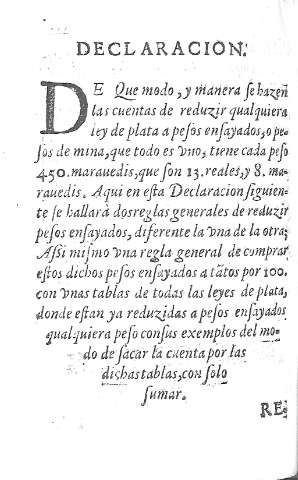 DECLARACION.
DE Que modo, y manera se hazen
las cuentas de reduzir qualquiera
ley de plata a pesos ensayados, o pe-
sos de mina, que todo es vno, tiene cada peso
450. marauedis, que son 13. reales, y 8. ma-
rauedis. Aqui en esta Declaracion siguien-
te se hallarà dos reglas generales de reduzir
pesos ensayados, diferente la vna de la otra;
Assi mismo vna regla general de comprar
estos dichos pesos ensayados a tãtos por 100.
con vnas tablas de todas las leyes de plata,
donde estan ya reduzidas a pesos ensayados
qualquiera peso con sus exemplos del mo-
do de sacar la cuenta por las
dichas tablas, con solo
sumar.
RE-